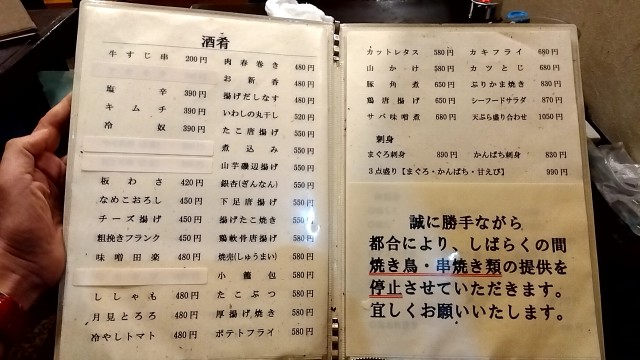 酒肴
牛すじ串 200円
塩辛 390円
キムチ 390円
冷奴 390円
板わさ 420円
なめこおろし 450円
チーズ揚げ 450円
粗挽きフランク 450円
味噌田楽 480円
ししゃも 480円
月見とろろ 480円
冷やしトマト 480円
肉春巻き 480円
お新香 480円
揚げだしなす 480円
いわしの丸干し 520円
たこ唐揚げ 550円
煮込み 550円
山芋磯辺揚げ 550円
銀杏(ぎんなん) 550円
下足唐揚げ 550円
揚げたこ焼き 550円
鶏軟骨唐揚げ 580円
焼売(しゅうまい) 580円
小籠包 580円
たこぶつ 580円
厚揚げ焼き 580円
ポテトフライ 580円
カットレタス 580円
山かけ 580円
豚角煮 650円
鶏唐揚げ 650円
サバ味噌煮 680円
カキフライ 680円
カツとじ 680円
ぶりかま焼き 830円
シーフードサラダ 870円
天ぷら盛り合わせ 1050円
刺身
まぐろ刺身 890円 かんぱち刺身 830円
3点盛り【まぐろ・かんぱち・甘えび】 990円
誠に勝手ながら
都合により、しばらくの間
焼き鳥・串焼き類の提供を
停止させていただきます。
宜しくお願いいたします。